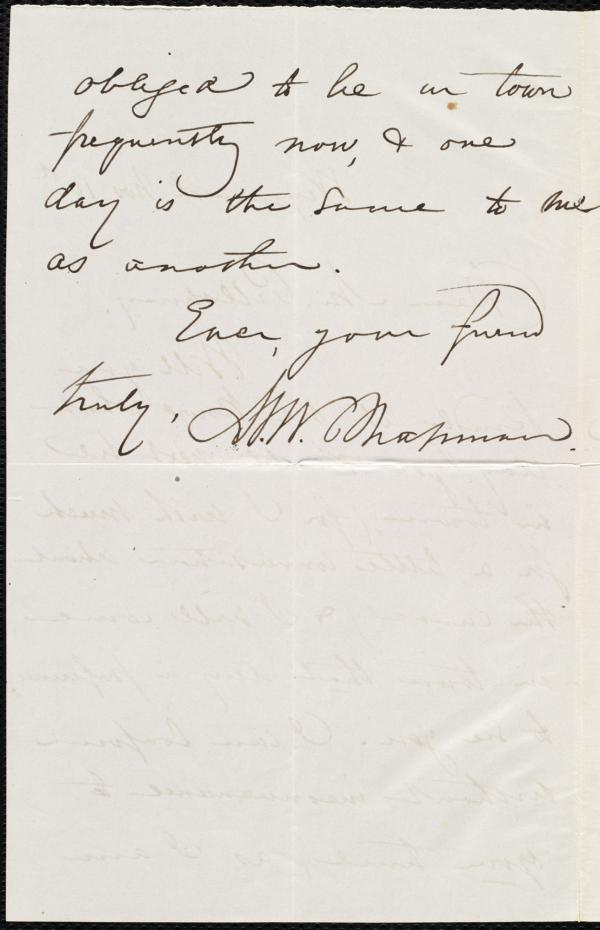 obliged to be in town
frequently now, & one
day is the same to me
as another.
Ever, your friend
truly, M. W. Chapman.